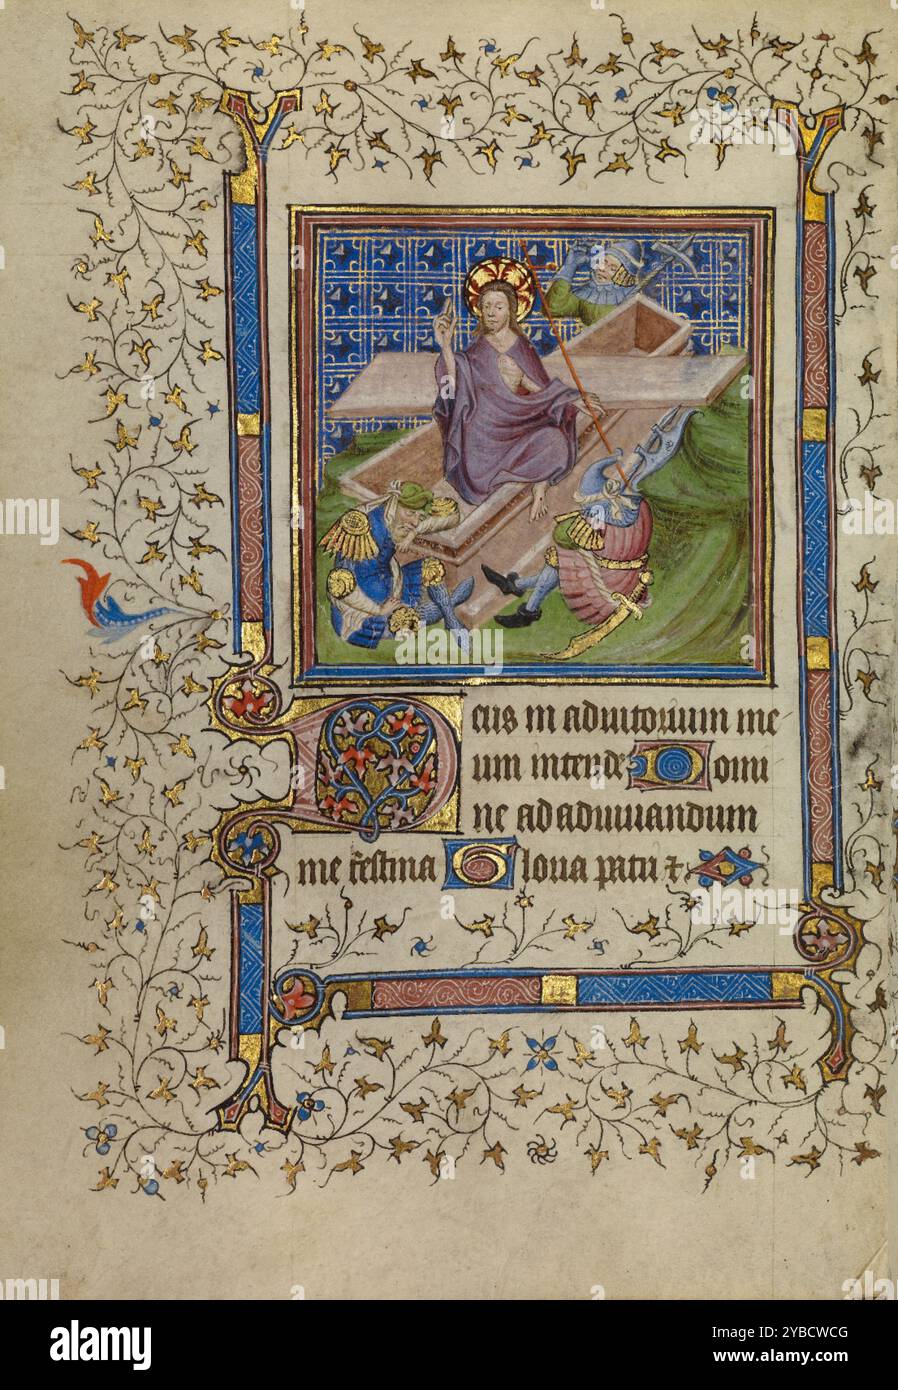 Deus in adiutorium me
um intende Domi
ne ad adiuuandum
me festina Gloria patri ⁊
alamy
Image ID: 2YBCWCG
www.alamy.com